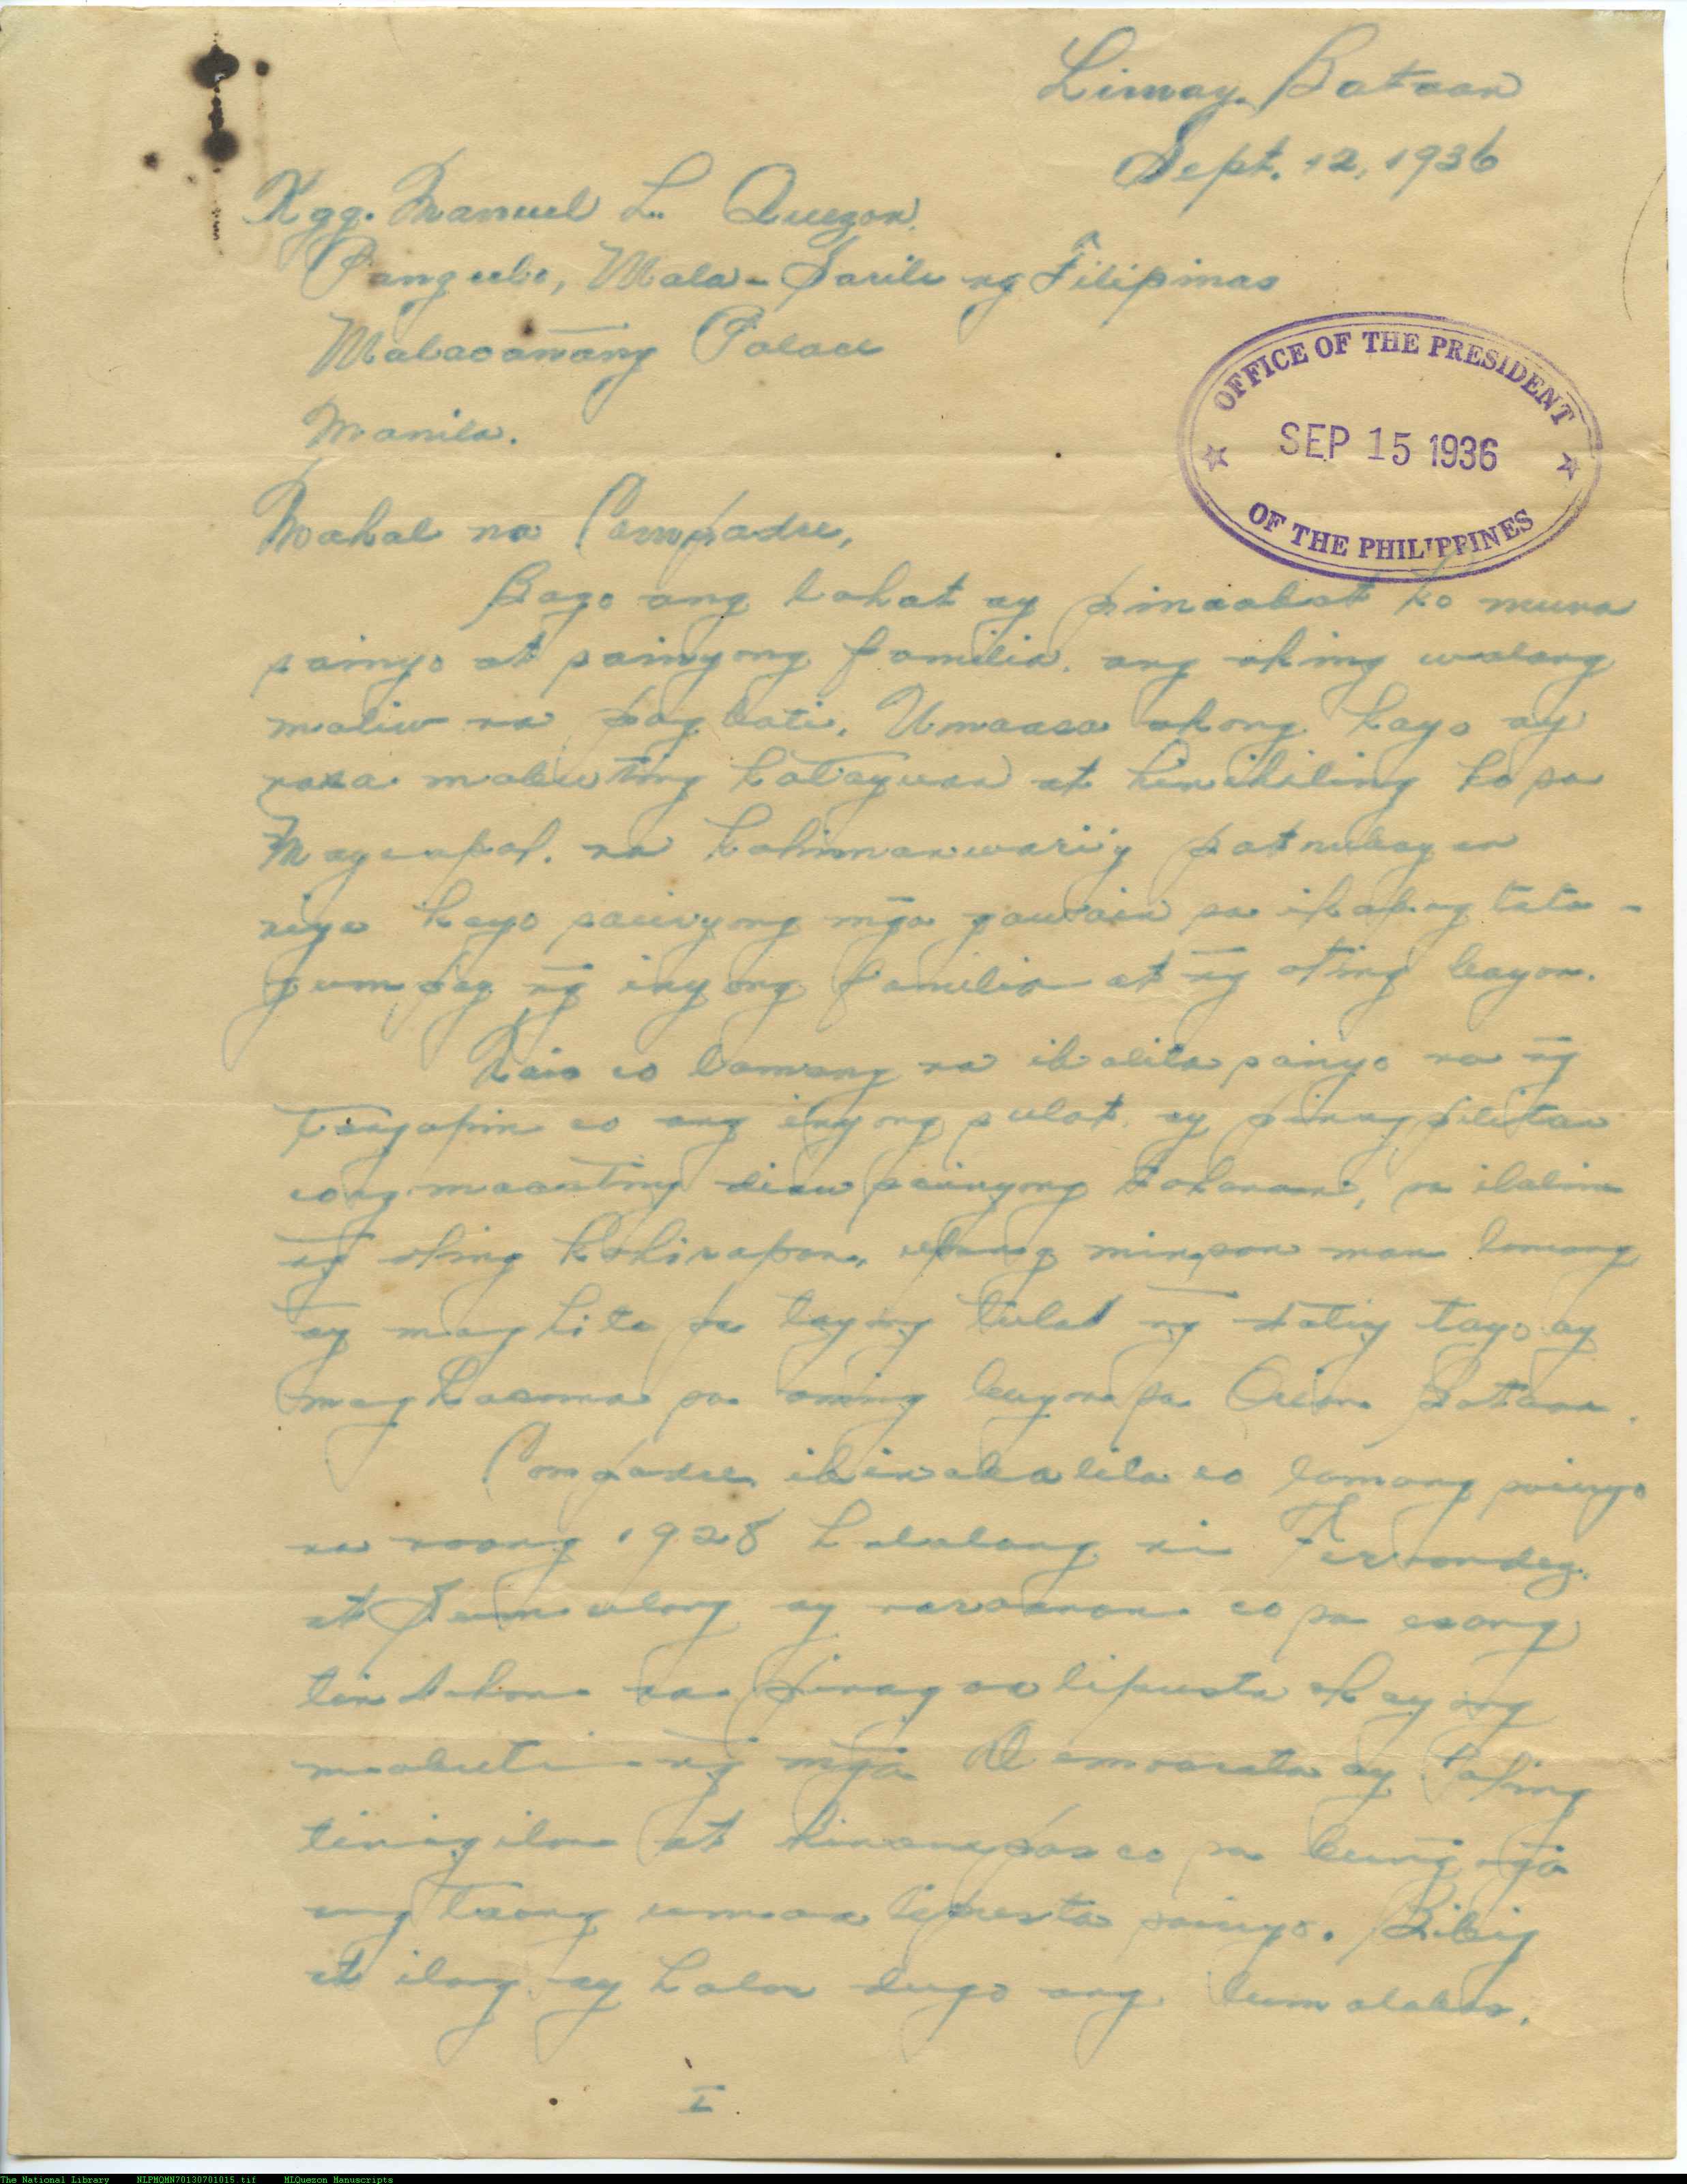 Limay, Bataan
Sept. 12, 1936
Kgg. Manuel L. Quezon.
Pangulo, Mala-Sarili ng Filipinas
Malacañang Palace
Manila.
OFFICE OF THE PRESIDENT
SEP 15 1936
OF THE PHILIPPINES
Mahal na Compadre,
Bago ang lahat ay pinaabot ko muna
sainyo at sainyong familia, ang aking walang
maliw na pagbati. Umaasa akong kayo ay
nasa mabuting katayuan at hinihiling ko sa
Maycapal, na kahimanwari'y patnubayan
niya kayo sainyong mga gawain sa ikapagtata-
gumpay ng inyong familia at ng ating bayan.
Nais co lamang na ibalita sainyo na ng
tangapin co ang inyong sulat, ay pinagpilitan
cong macating diau sainyong tahanan, sa ilalim
ng aking kahirapan, upang minsan man lamang
ay magkita sa tayong tulad ng dating tayo ay
magkasama sa aming bayan sa Orion Bataan.
Compadre ibinabalita co lamang sainyo
na noong 1928 halalang ni Fernandez.
at Sumulong ay naraanan co sa esang
tindahan na pinag aalipusta kayong
mabuti ng mga Democrata ay aking
tinigilan at hinampas co sa bung̃ang̃a
ang taong umaalipusta sainyo. Bibig
at ilong ay halos dugo ang lumalabas.
I
The National Library NLPMQMN70130701015.tif MLQuezon Manuscripts